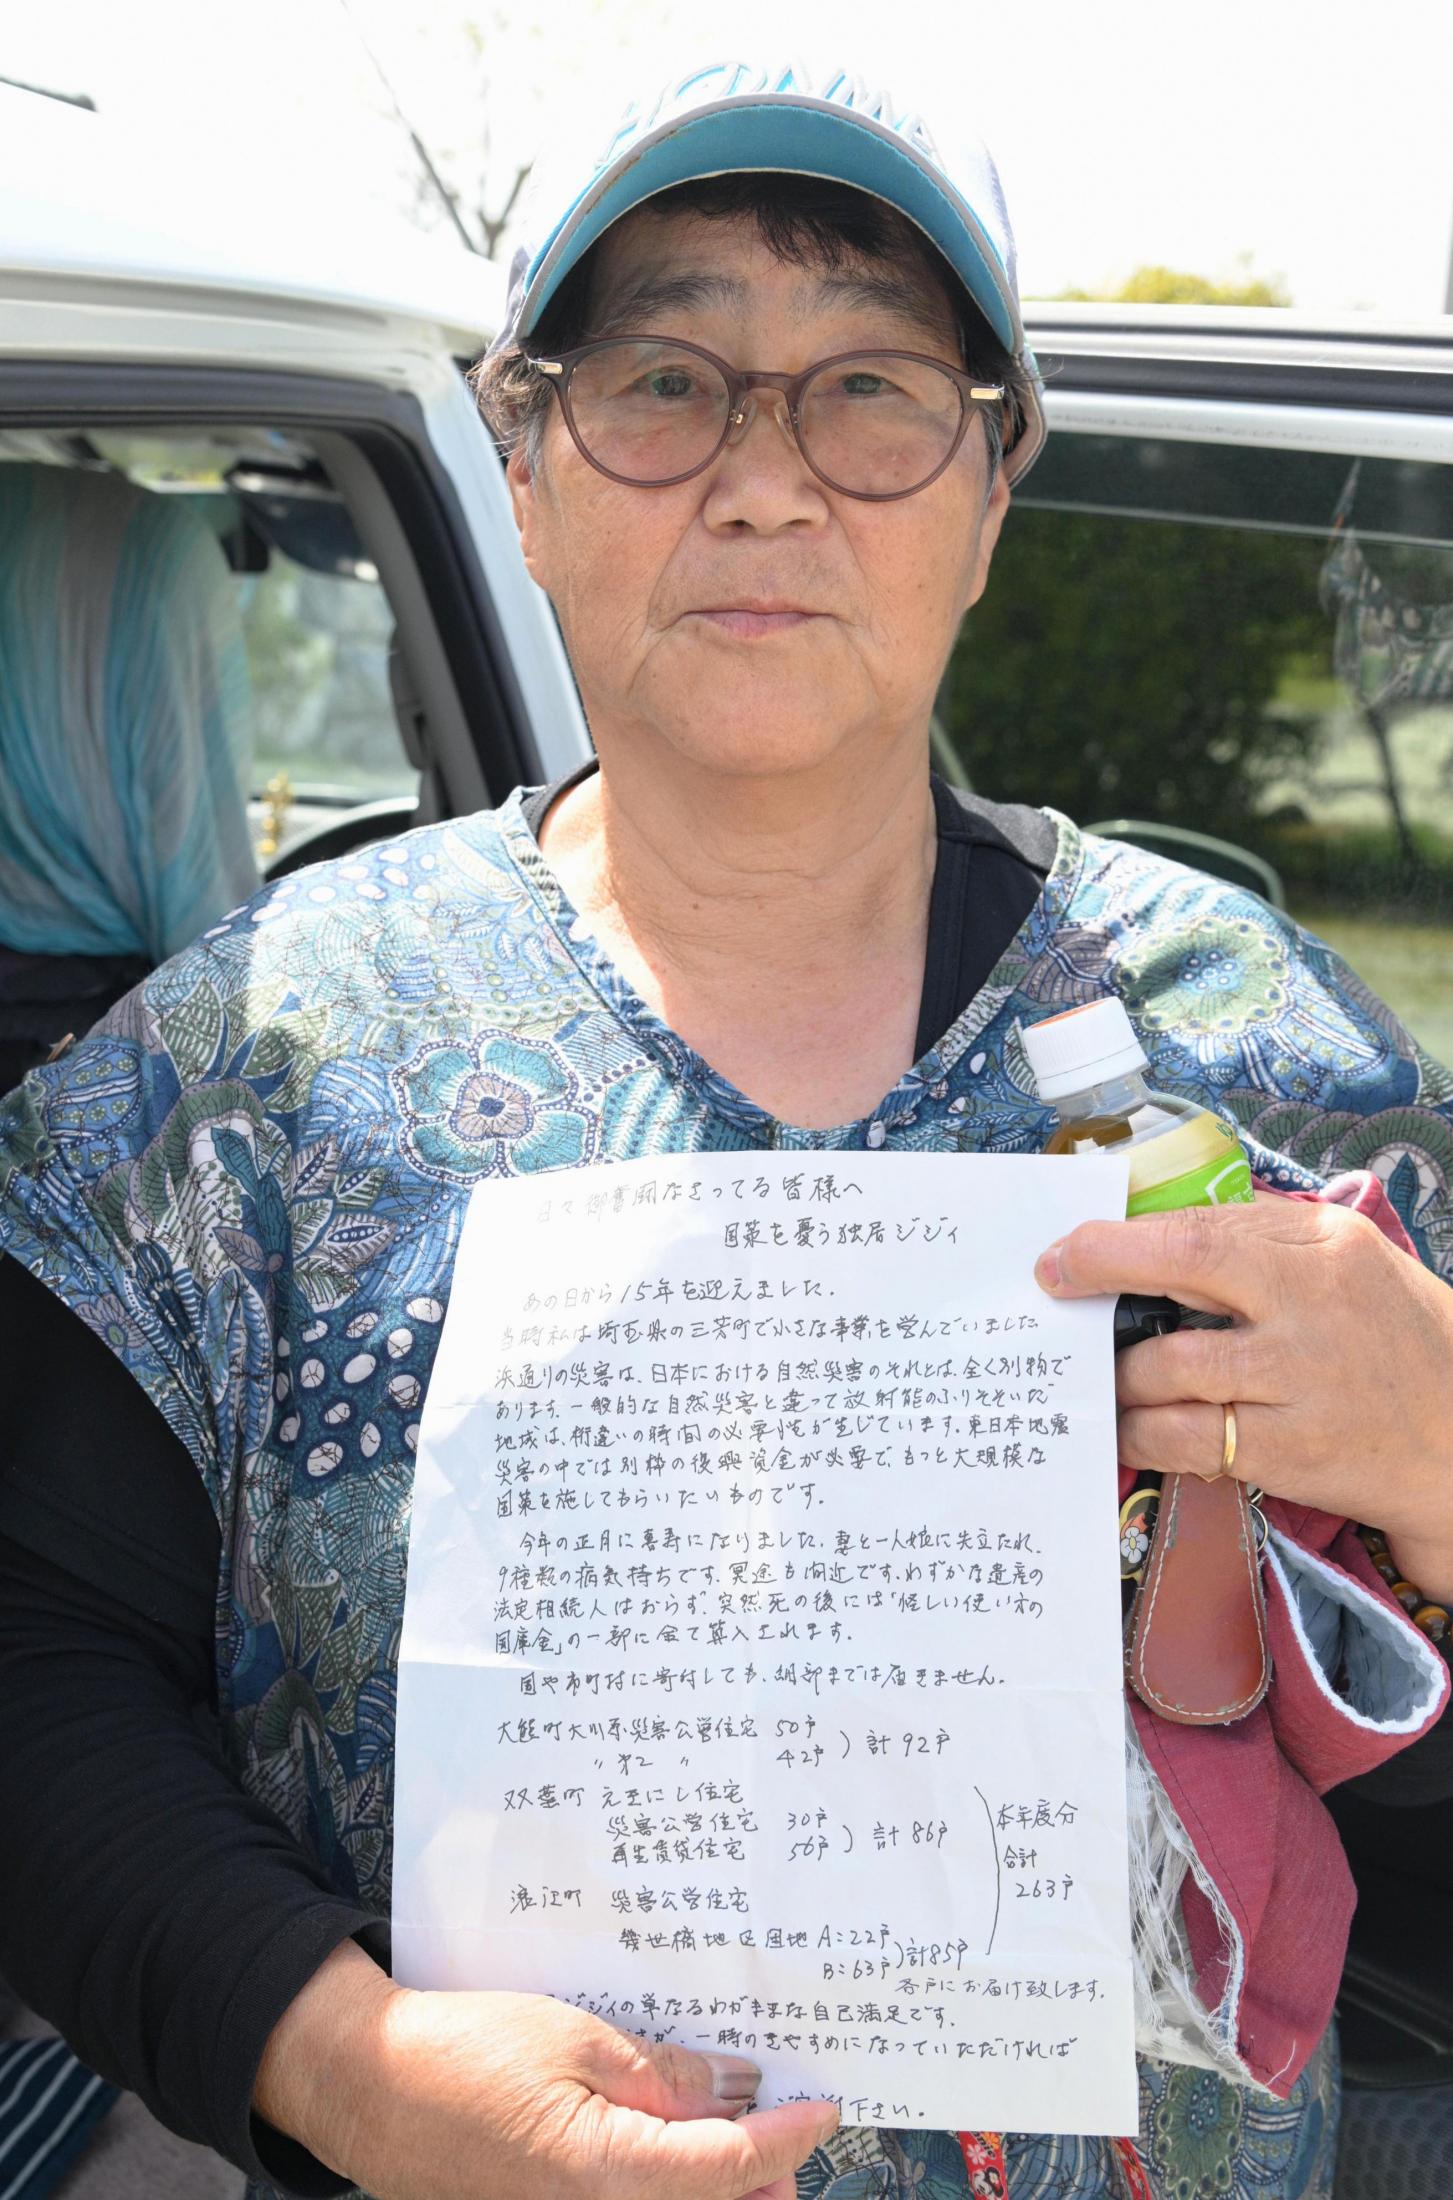 HONMA
日々御奮闘なさってる皆様へ
国策を憂う独居ジジィ
あの日から15年を迎えました.
当時私は埼玉県の三芳町で小さな事業を営んでいました
浜通りの災害は、日本における自然災害のそれとは、全く別物で
あります.一般的な自然災害と違って放射能のふりそそいだ
地域は、桁違いの時間の必要性が生じています.東日本地震
災害の中では別枠の復興資金が必要で、もっと大規模な
国策を施してもらいたいものです.
今年の正月に喜寿になりました.妻と一人娘に先立たれ、
9種類の病気持ちです.冥途も間近です.わずかな遺産の
法定相続人はおらず、突然死の後には「怪しい使い方の
国庫金」の一部に全て算入されます.
国や市町村に寄付しても、細部までは届きません.
大熊町大川原災害公営住宅 50戸
〃 第2 〃 42戸 ) 計92戸
双葉町 えきにし住宅
災害公営住宅 30戸
再生賃貸住宅 56戸 ) 計86戸
本年度分
合計
263戸
浪江町 災害公営住宅
幾世橋地区団地 A:22戸
B:63戸 ) 計85戸
各戸にお届け致します.
ジジィの単なるわがままな自己満足です.
が、一時のきやすめになっていただければ
下さい.